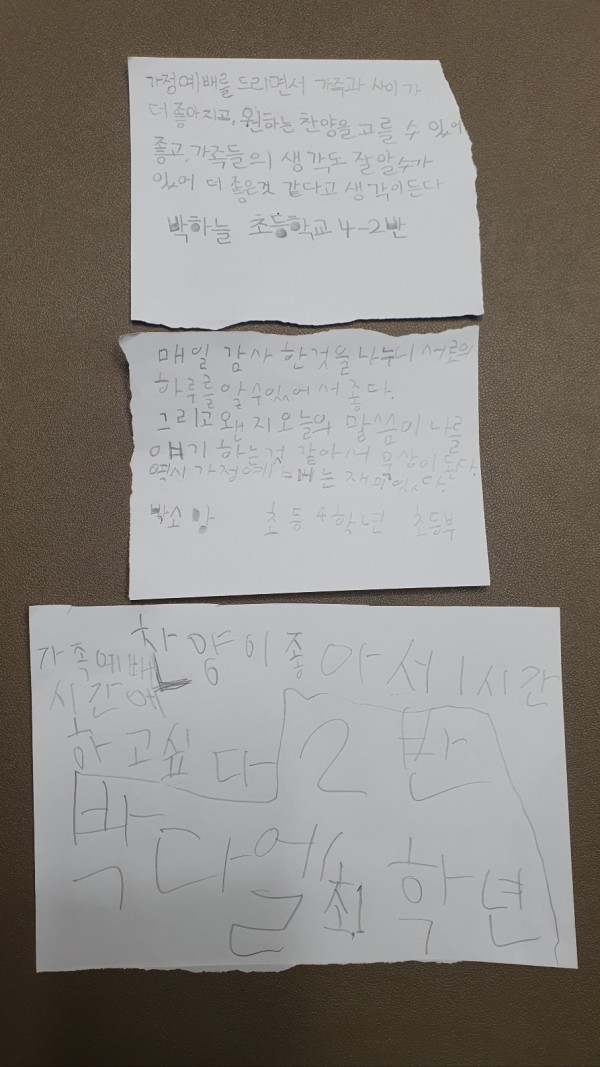 가정예배를 드리면서 가족과 사이가
더 좋아지고, 원하는 찬양을 고를 수 있어
좋고, 가족들의 생각도 잘 알수가
있어 더 좋은것 같다고 생각이든다
박하늘 초등학교 4-2반
매일 감사 한것을 나누니 서로의
하루를 알수있어서 좋다.
그리고 왠지 오늘의 말씀이 나를
얘기 하는것 같아서 묵상이 된다.
역시 가정예배는 재미있다.
박소망 초등4학년 초등부
가족예배 찬양이 좋아서 1시간
시간에
하고싶다 2반
박다엘 초1학년